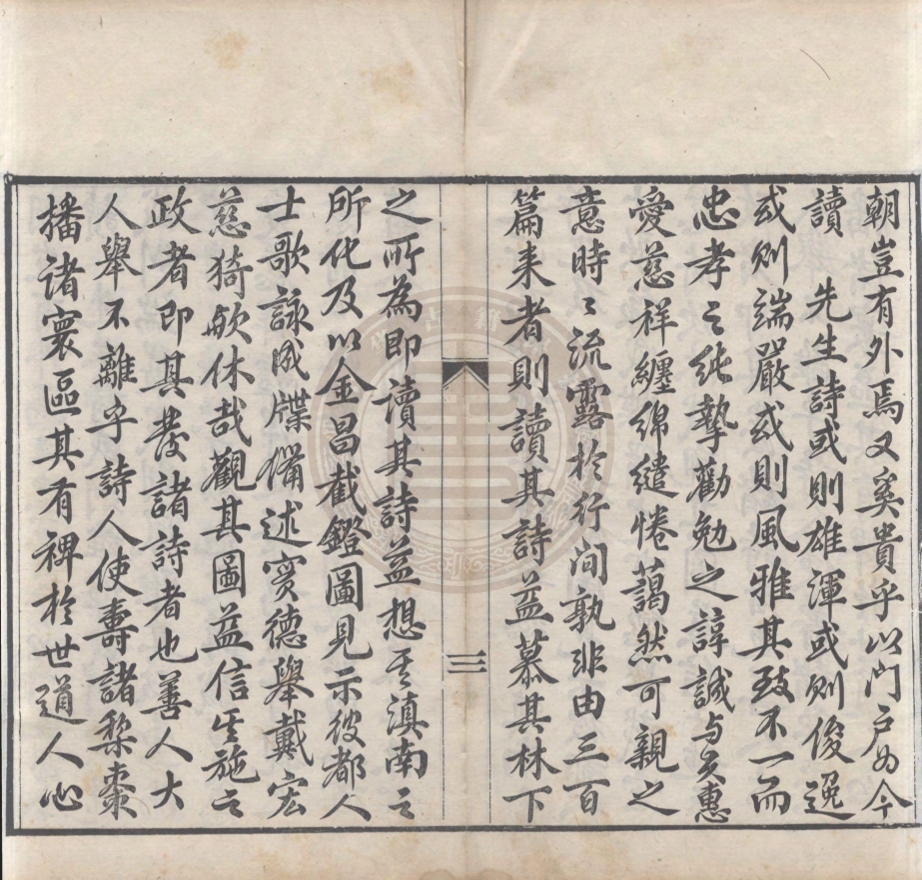 朝豈有外焉又奚貴乎以門戶如今
讀　先生詩或則雄渾或則俊逸
或則端嚴或則風雅其致不一而
忠孝之純摯勸勉之諄誠与夫惠
愛慈祥纏綿繾惓藹然可親之
意時〻流露於行間孰非由三百
篇来者則讀其詩益慕其林下
三
之所為即讀其詩益想其滇南之
所化及以金昌截鐙圖見示彼都人
士歌詠成牒備述實德舉戴宏
慈猗歟休哉觀其圖益信其施之
政者即其發諸詩者也善人大
人舉不離乎詩人使壽諸梨棗
播诸寰區其有裨於世道人心